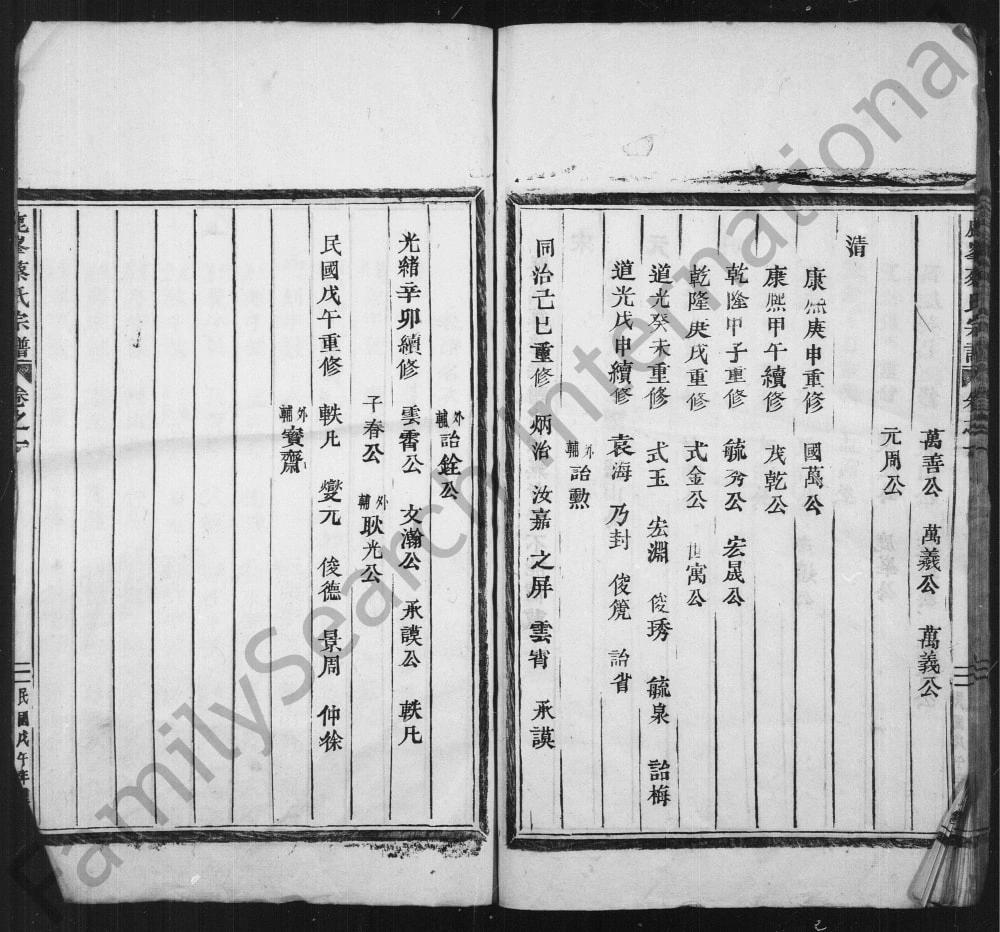 萬善公 萬羲公 萬義公
元周公
清
康熙庚申重修 國萬公
康熙甲午續修 茂乾公
乾隆甲子重修 毓秀公 宏晟公
乾隆庚戌重修 式金公 世寓公
道光癸未重修 式玉 宏淵 俊琇 毓泉 詒梅
道光戊申續修 袁海 乃封 俊箎 詒省
外輔 詒勲
同治己巳重修 炳治 汝嘉 之屏 雲霄 承謨
外輔 詒銓公
光緒辛卯續修 雲霄公 文瀚公 承謨公 軼凡
子春公 外輔 耿光公
民國戊午重修 軼凡 燮元 俊德 景周 仲徐
外輔 賓齋
蔡氏宗譜 卷之一
二 民國戊午年
FamilySearch International